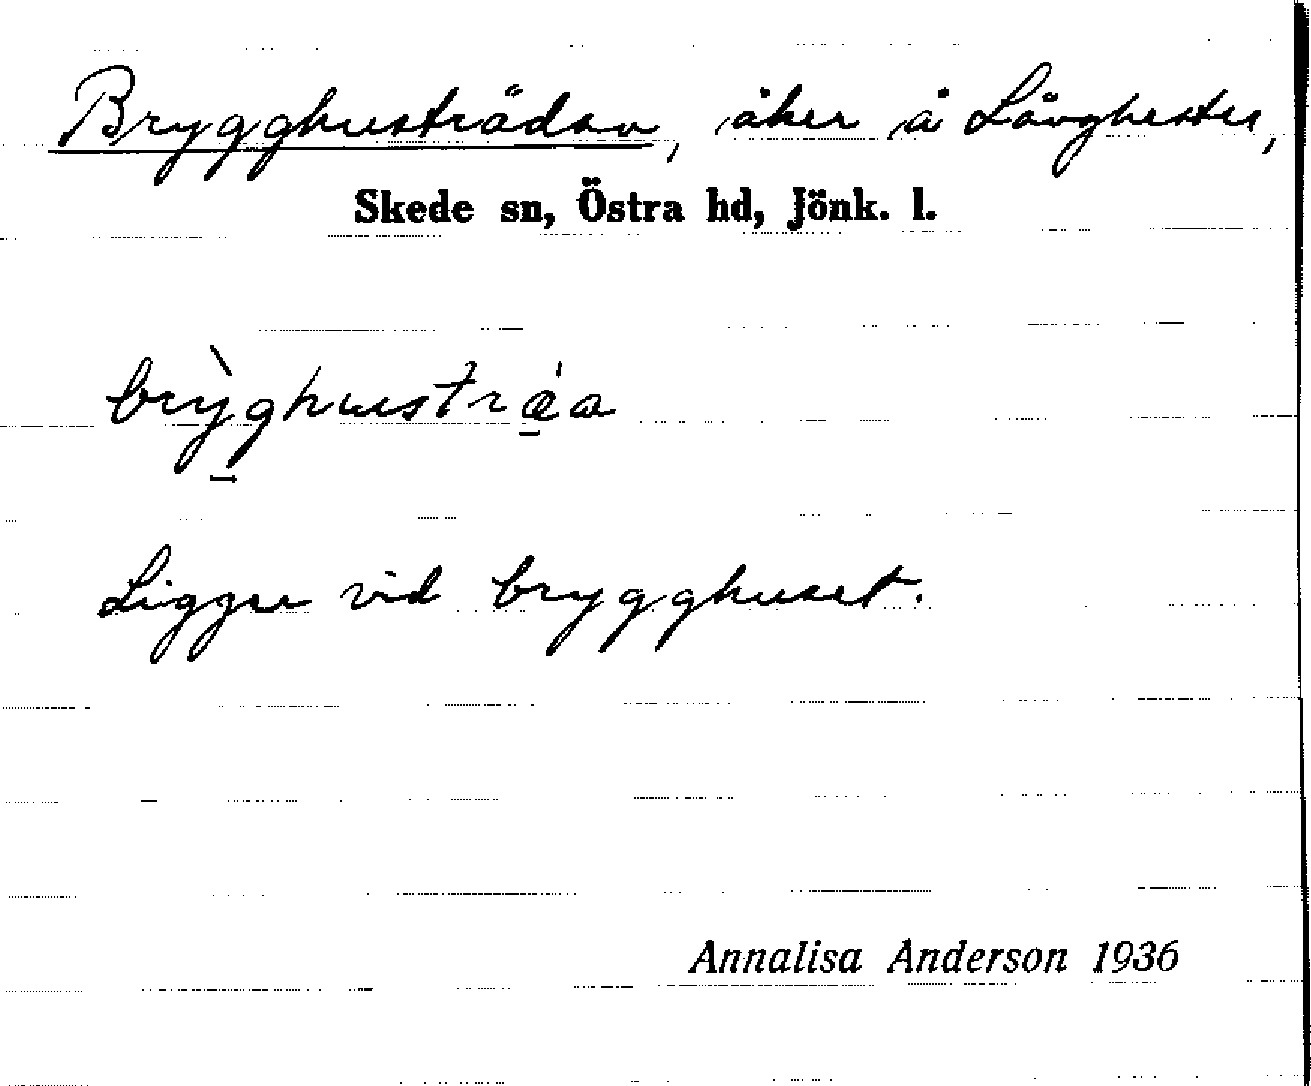 Brygghusträdan, åker å Långhester,
Skede sn, Östra hd, Jönk. l.
brỳ̱ghustrǽ̱a
Ligger vid brygghuset.
Annalisa Anderson 1936